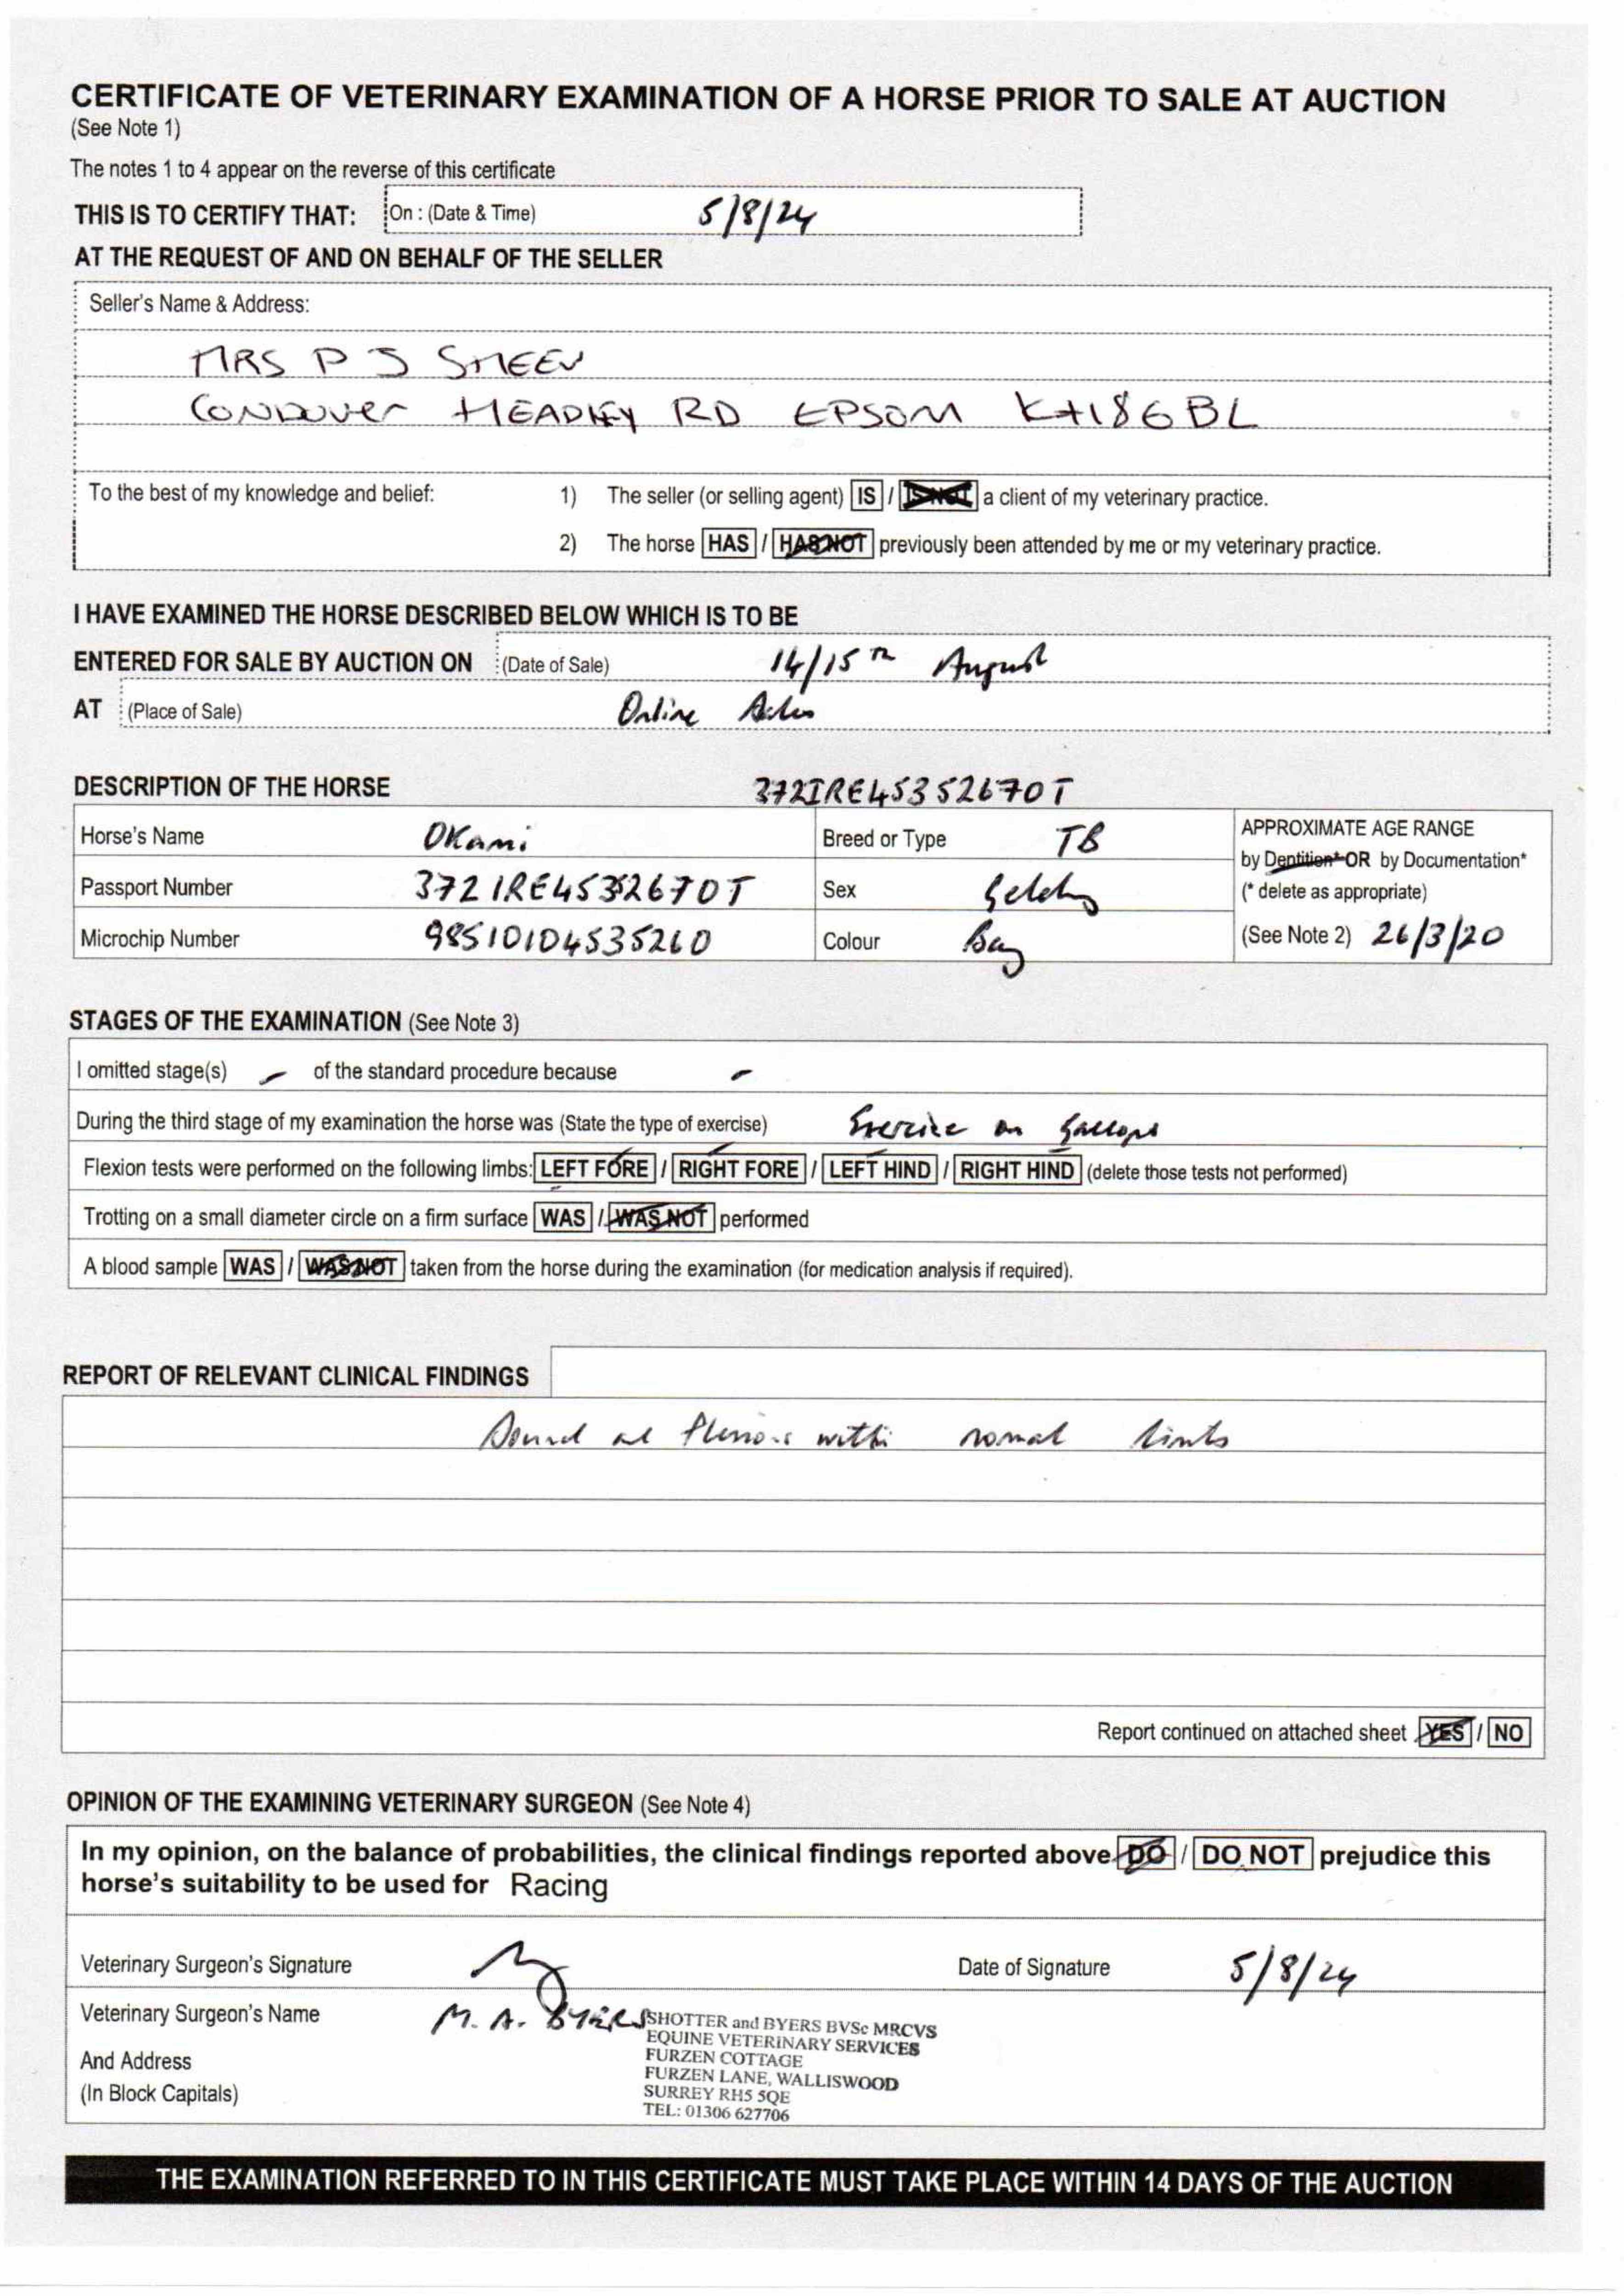 CERTIFICATE OF VETERINARY EXAMINATION OF A HORSE PRIOR TO SALE AT AUCTION
(See Note 1)
The notes 1 to 4 appear on the reverse of this certificate
THIS IS TO CERTIFY THAT: On : (Date & Time) 5/8/24
AT THE REQUEST OF AND ON BEHALF OF THE SELLER
Seller's Name & Address:
MRS P J
CONDOVER HEADLEY RD EPSOM KT186BL
To the best of my knowledge and belief: 1) The seller (or selling agent) IS / IS NOT a client of my veterinary practice.
2) The horse HAS / HAS NOT previously been attended by me or my veterinary practice.
I HAVE EXAMINED THE HORSE DESCRIBED BELOW WHICH IS TO BE
ENTERED FOR SALE BY AUCTION ON (Date of Sale) 14/15th August
AT (Place of Sale) Online
DESCRIPTION OF THE HORSE 372IRE45352670T
Horse's Name Okami Breed or Type TB APPROXIMATE AGE RANGE
by Dentition* OR by Documentation*
Passport Number 372IRE45352670T Sex Gelding (* delete as appropriate)
Microchip Number 98510104535260 Colour Bay (See Note 2) 26/3/20
STAGES OF THE EXAMINATION (See Note 3)
I omitted stage(s) - of the standard procedure because -
During the third stage of my examination the horse was (State the type of exercise) Exercise on Gallops
Flexion tests were performed on the following limbs: LEFT FORE / RIGHT FORE / LEFT HIND / RIGHT HIND (delete those tests not performed)
Trotting on a small diameter circle on a firm surface WAS / WAS NOT performed
A blood sample WAS / WAS NOT taken from the horse during the examination (for medication analysis if required).
REPORT OF RELEVANT CLINICAL FINDINGS
Sound and flexions within normal limits
Report continued on attached sheet YES / NO
OPINION OF THE EXAMINING VETERINARY SURGEON (See Note 4)
In my opinion, on the balance of probabilities, the clinical findings reported above DO / DO NOT prejudice this
horse's suitability to be used for Racing
Veterinary Surgeon's Signature Date of Signature 5/8/24
Veterinary Surgeon's Name M. A. BYERS
And Address
(In Block Capitals)
SHOTTER and BYERS BVSc MRCVS
EQUINE VETERINARY SERVICES
FURZEN COTTAGE
FURZEN LANE, WALLISWOOD
SURREY RH5 5QE
TEL: 01306 627706
THE EXAMINATION REFERRED TO IN THIS CERTIFICATE MUST TAKE PLACE WITHIN 14 DAYS OF THE AUCTION